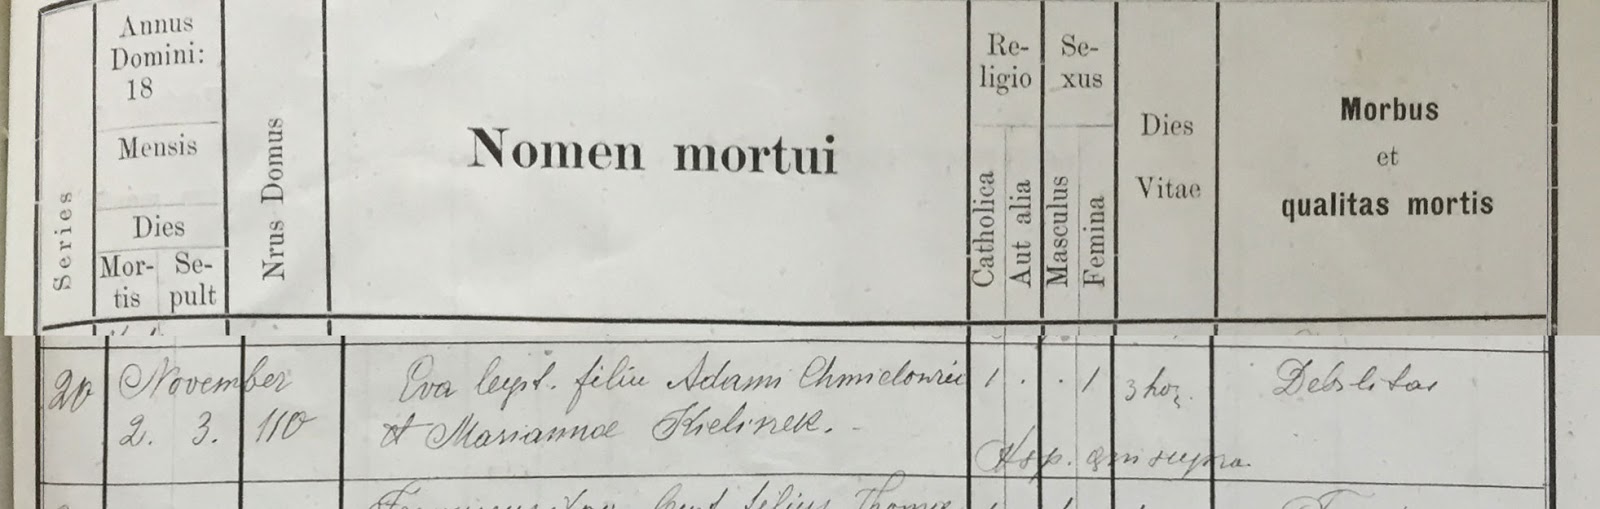 Series
Annus
Domini:
18
Mensis
Dies
Mor-
tis
Se-
pult
Nrus Domus
Nomen mortui
Re-
ligio
Catholica
Aut alia
Se-
xus
Masculus
Femina
Dies
Vitae
Morbus
et
qualitas mortis
20 November Eva legit. filia Adami 1 . . 1 3 hor. Debilitas
2. 3. 110 et Mariannae Kielinek.
supra.
filius Thomae